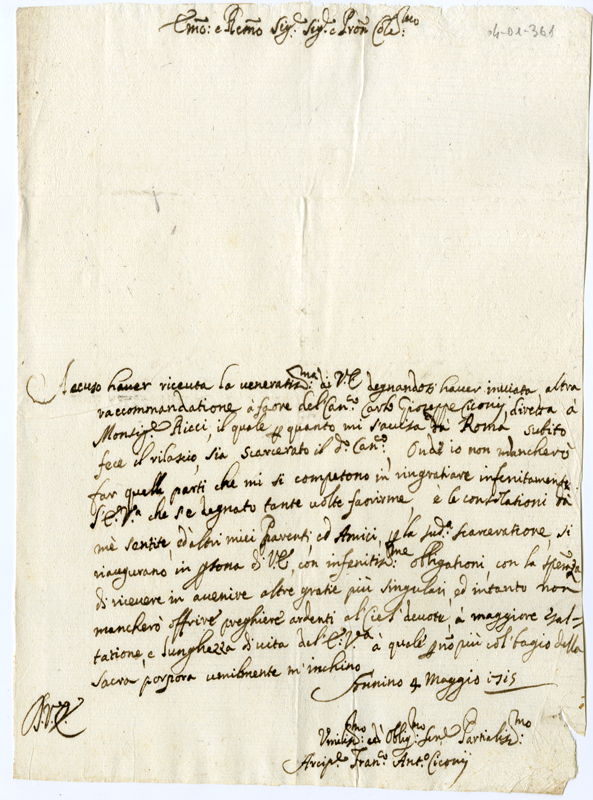 Emo: e Remo Sig.r Sig.r e Pron Col.mo
04-01-361
Accuso haver riceuta la veneratis.ma di V.E. degnandosi haver inviata altra
raccommandatione à favore del Can.co Carlo Gioseppe Ciconij, diretta à
Monsig.r Ricci, il quale p quanto mi s'avisa da Roma subito
fece il rilascio, sia scarcerato il d.o Can.co, Onde io non mancherò
far quelle parti che mi si competono in ringratiare infinitamente
l'E. V.ra che s'è degnato tante volte favorirme, e le consolationi da
mè sentite, ed'altri miei Parenti ed Amici, p la sud.a scarceratione, si
riaugurano in psona di V.E. con infinitis.me obligationi, con la speranza
di ricevere in avenire altre gratie più singulari, ed intanto non
mancherò offrire preghiere ardenti al Cielo devote, à maggiore Exal-
tatione, e lunghezza di vita dell'E. V.ra à quale più col bagio della
Sacra porpora umilmente m'inchino
Sonnino 4 Maggio 1715
D.V.E.
Umilis.mo ed Oblig.mo Ser.e Partialis.mo
Arcip.e Fran.co Ant.o Ciconij